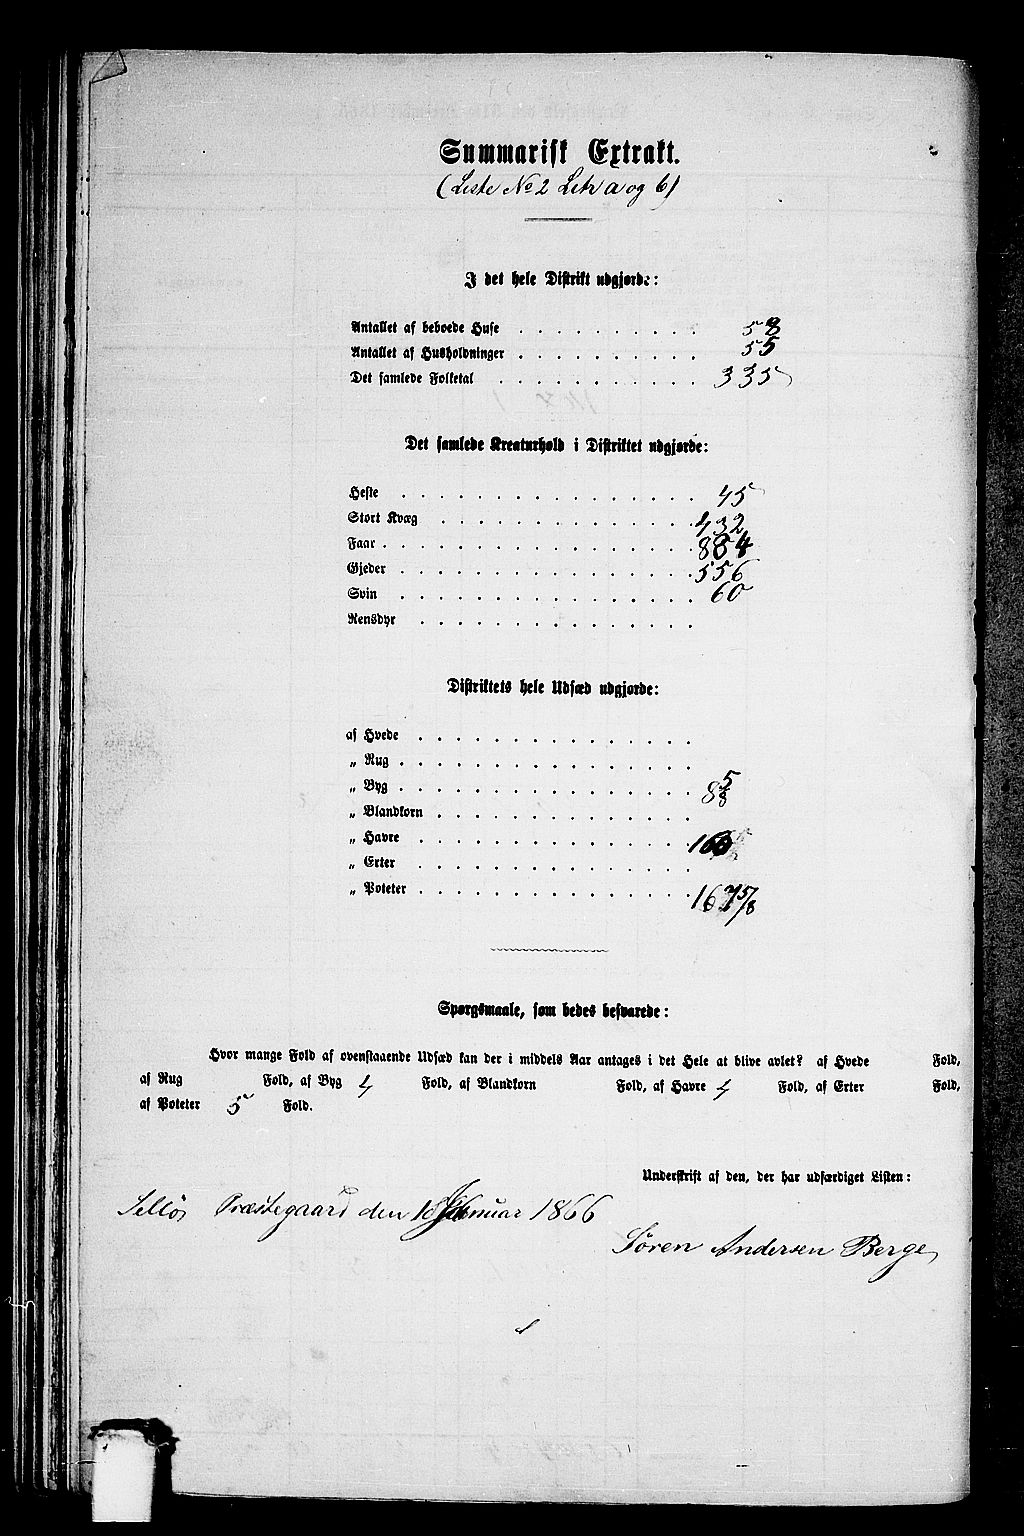 Summarisk Extrakt.
(Liste No 2 Litr a og b)
I det hele Distrikt udgjorde:
Antallet af beboede Huse . . . . . . . . . . 58
Antallet af Husholdninger . . . . . . . . . . 55
Det samlede Folketal . . . . . . . . . . . 335
Det samlede Kreaturhold i Distriktet udgjorde:
Heste . . . . . . . . . . . . . . . . 45
Stort Kvæg . . . . . . . . . . . . . . 432
Faar . . . . . . . . . . . . . . . . .
Gjeder . . . . . . . . . . . . . . . . 556
Svin . . . . . . . . . . . . . . . . 60
Rensdyr . . . . . . . . . . . . . . .
Distriktets hele Udsæd udgjorde:
af Hvede . . . . . . . . . . . . . . .
„ Rug . . . . . . . . . . . . . . . .
„ Byg . . . . . . . . . . . . . . . . 8 5/8
„ Blandkorn . . . . . . . . . . . . . .
„ Havre . . . . . . . . . . . . . . .
„ Erter . . . . . . . . . . . . . . .
„ Poteter . . . . . . . . . . . . . . . 167 5/8
Spørgsmaale, som bedes besvarede:
Hvor mange Fold af ovenstaaende Udsæd kan der i middels Aar antages i det Hele at blive avlet? af Hvede Fold,
af Rug Fold, af Byg 4 Fold, af Blandkorn Fold, af Havre 4 Fold, af Erter Fold,
af Poteter 5 Fold.
Underskrift af den, der har udfærdiget Listen:
Præstegaard den Januar 1866
Søren Andersen Berge